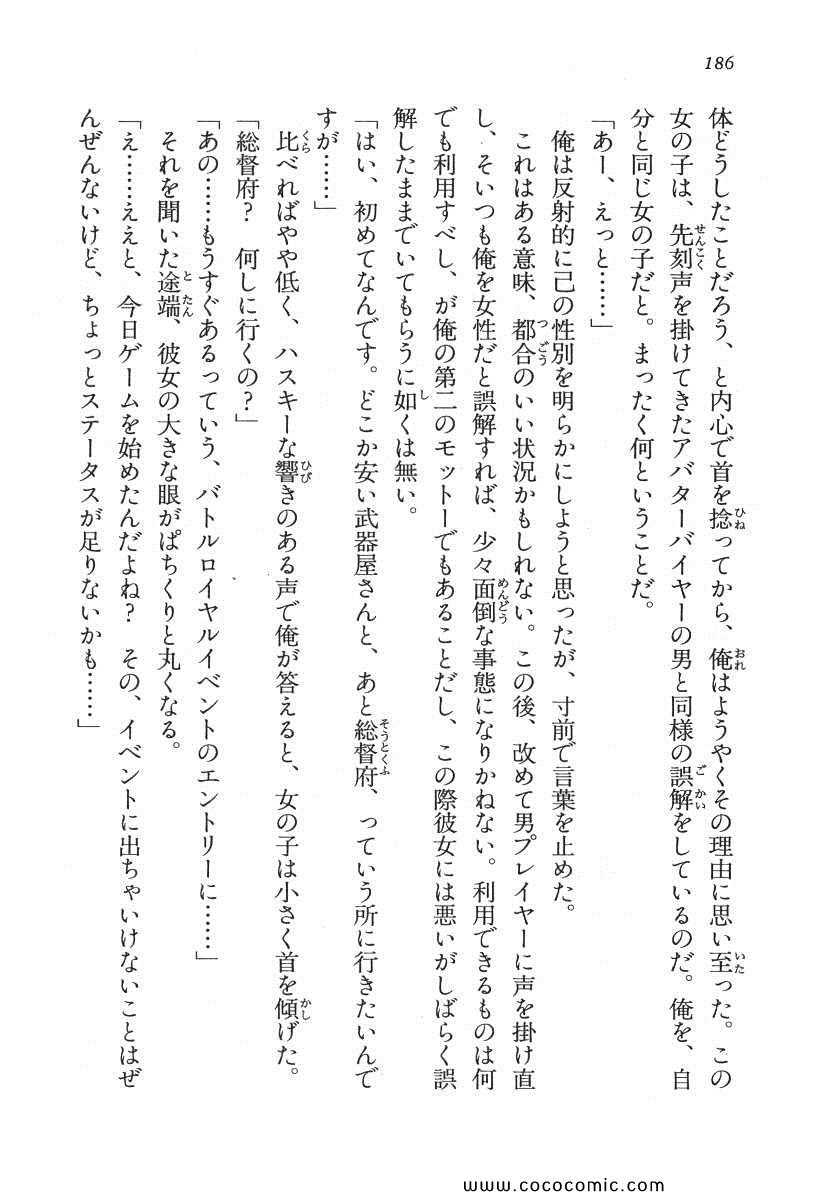 186
体どうしたことだろう、と内心で首を捻ってから、俺はようやくその理由に思い至った。この
女の子は、先刻声を掛けてきたアバターバイヤーの男と同様の誤解をしているのだ。俺を、自
分と同じ女の子だと。まったく何ということだ。
「あー、えっと……」
俺は反射的に己の性別を明らかにしようと思ったが、寸前で言葉を止めた。
これはある意味、都合のいい状況かもしれない。この後、改めて男プレイヤーに声を掛け直
し、そいつも俺を女性だと誤解すれば、少々面倒な事態になりかねない。利用できるものは何
でも利用すべし、が俺の第二のモットーでもあることだし、この際彼女には悪いがしばらく誤
解したままでいてもらうに如くは無い。
「はい、初めてなんです。どこか安い武器屋さんと、あと総督府、っていう所に行きたいんで
すが……」
比べればやや低く、ハスキーな響きのある声で俺が答えると、女の子は小さく首を傾げた。
「総督府？　何しに行くの？」
「あの……もうすぐあるっていう、バトルロイヤルイベントのエントリーに……」
それを聞いた途端、彼女の大きな眼がぱちくりと丸くなる。
「え……ええと、今日ゲームを始めたんだよね？　その、イベントに出ちゃいけないことはぜ
んぜんないけど、ちょっとステータスが足りないかも……」
www.cococomic.com